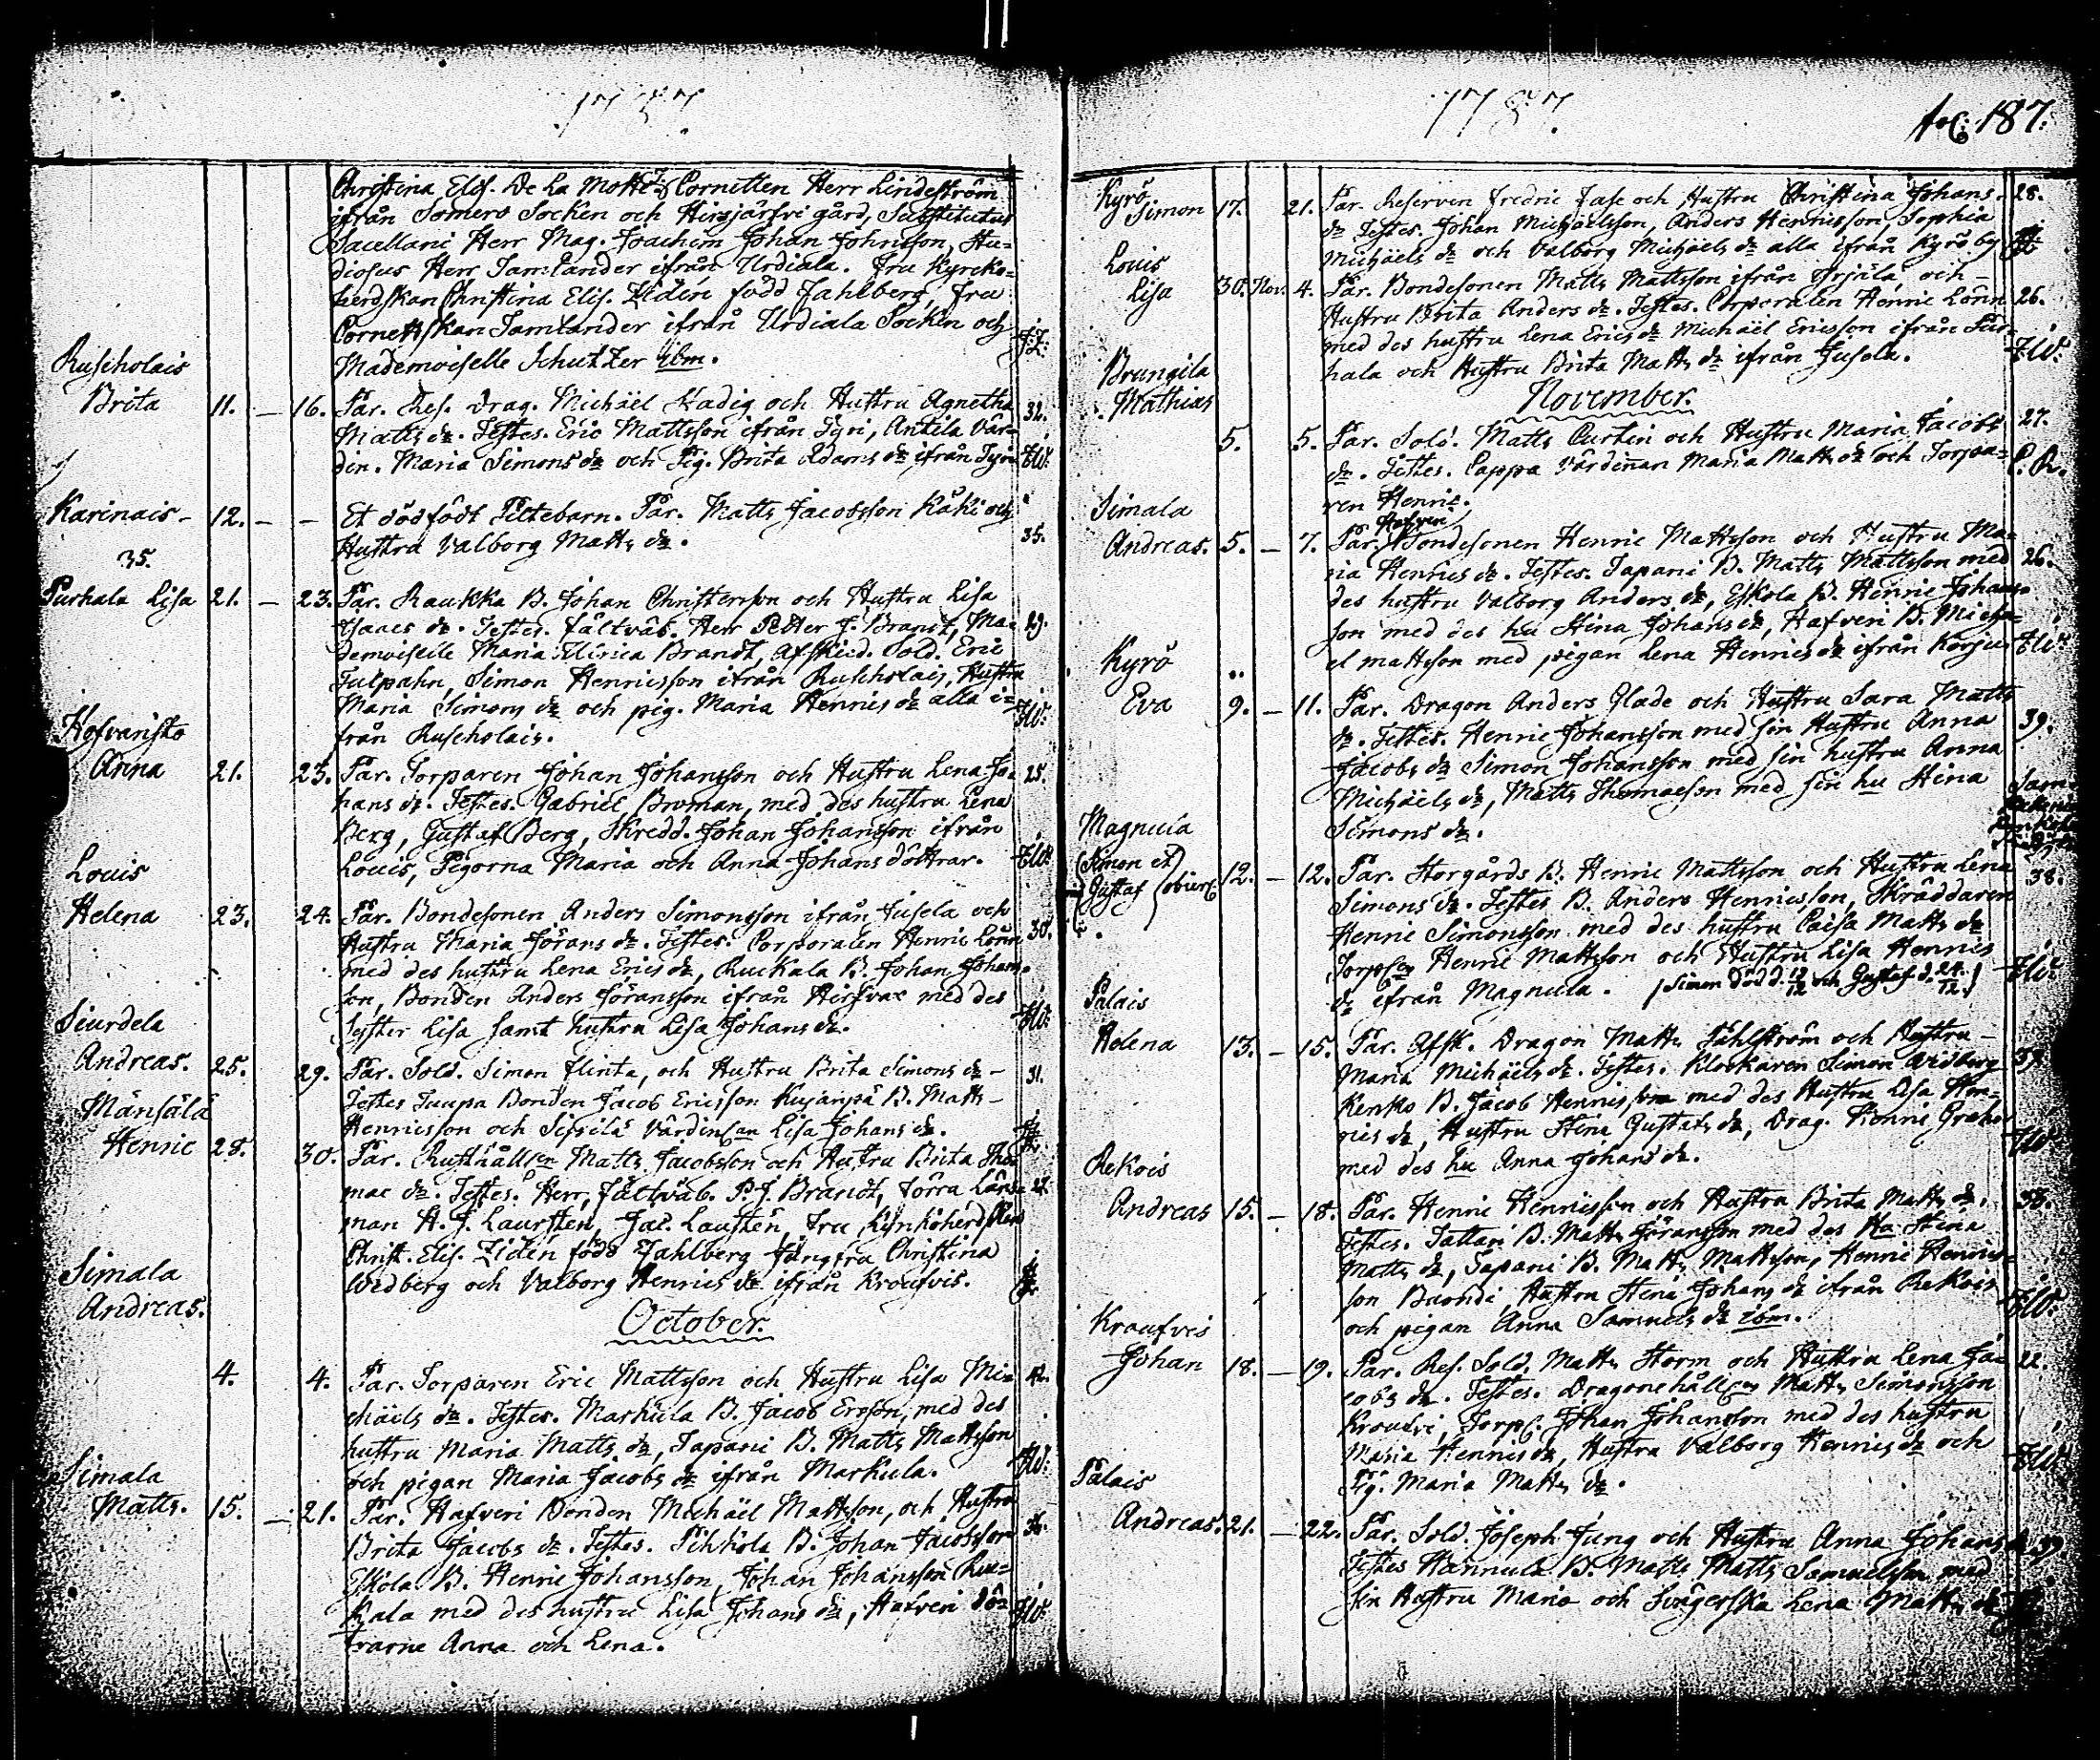 1787.
Christina Elis. De La Motte, Cornetten Herr Lindeström
ifrån Somero Socken och Hirsjärfvi gård, Substitutus
Sacellani Herr Mag. Joachim Johan Johnsson, Stu=
diosus Herr Tamlander ifrån Urdiala. Fru Kyrcko=
herdskan Christina Elis. Zidén född Fahlberg, Fru
Cornettskan Tamlander ifrån Urdiala Socken och
Mademoiselle Schutzer ibm.
Ruscholais
Brita 11. — 16. Par. Res. Drag. Michäel Hadig och Hustru Agnetha 32.
Matts dr. Testes. Eric Mattsson ifrån Tyri, Antila Vär=
din. Maria Simons dr och Pig. Brita Adams dr ifrån Tyri
Karinais - 12. - - Et dödfödt Piltebarn. Par. Matts Jacobsson Käki och
Hustru Valborg Matts dr. 35.
35.
Purhala Lisa 21. — 23. Par. Raukka B. Johan Christersson och Hustru Lisa
Isaacs dr. Testes. Fältväb. Herr Petter J. Brandt, Ma= 29.
demoiselle Maria Ulrica Brandt, Afskied. Sold. Eric
Tulpahn, Simon Henricsson ifrån Ruscholais, Hustru
Maria Simons dr och pig. Maria Henrics dr alla i=
från Ruscholais.
Hofvaristo
Anna 21. 23. Par. Torparen Johan Johansson och Hustru Lena Jo= 25.
hans dr. Testes. Gabriel Broman, med des hustru Lena
Berg, Gustaf Berg, Skredd. Johan Johansson ifrån
Louis, Pigorna Maria och Anna Johans döttrar.
Louis
Helena 23. 24. Par. Bondesonen Anders Simonsson ifrån Jusela och
Hustru Maria Jörans dr. Testes. Corporalen Henric Lönn 30.
med des hustru Lena Erics dr, Ruckala B. Johan Johans=
son, Bonden Anders Göransson ifrån Hirsvac med des
Syster Lisa samt hustru Lisa Johans dr.
Siurdela
Andreas. 25. 29. Par. Sold. Simon Flinta, och Hustru Brita Simons dr - 31.
Testes Tuupa Bonden Jacob Ericsson Kujanpä B. Matts -
Henricsson och Sipilä Värdinnan Lisa Johans dr.
Mänsälä
Henric 28. 30. Par. Rusthållen Matts Jacobsson och Hustru Brita Tho=
mae dr. Testes. Herr, Fältväb. P. J. Brandt, förra Läns=
man H. J. Laurstén, Jac. Laustén, Fru Kyrkoherdskan
Christ. Elis. Zidén född Fahlberg Jungfru Christina
Widberg och Valborg Henrics dr ifrån Kroufvis.
October.
Simala
Andreas.
4. 4. Par. Torparen Eric Mattsson och Hustru Lisa Mi= 42.
chäels dr. Testes. Markula B. Jacob Ersson, med des
hustru Maria Matts dr, Tapani B. Matts Mattsson
och pigan Maria Jacobs dr ifrån Markula.
Simala
Matts. 15. — 21. Par. Hafveri Bonden Michäel Mattsson, och Hustru
Brita Jacobs dr. Testes. Pihkola B. Johan Jacobsson
Eskola B. Henric Johansson, Johan Johansson Ruc=
kala med des hustru Lisa Johans dr, Hafveri döt=
trarne Anna och Lena.
1787.
187.
Kyrö
Simon 17. 21. Par. Reserven Fredric Fase och Hustru Christina Johans= 28.
dr. Testes. Johan Michäelsson, Anders Henricsson, Sophia
Michäels dr och Valborg Michäels dr alla ifrån Kyrö by
Louis
Lisa 30. Nov. 4. Par. Bondesonen Matts Mattsson ifrån Örjälä och -
Hustru Brita Anders dr. Testes. Corporalen Henric Lönn 26.
med des hustru Lena Erics dr Michäel Ericsson ifrån Pur=
hala och Hustru Brita Matts dr ifrån Jusela.
November.
Brungila
Mathias
5. 5. Par. Sold. Matts Curtin och Hustru Maria Jacobs 27.
dr. Testes. Pappa Värdinnan Maria Matts dr och Torpa=
ren Henric.
Simala
Hafveri
Andreas. 5. — 7. Par. Bondesonen Henric Mattsson och Hustru Ma=
ria Henrics dr. Testes. Tapani B. Matts Mattsson med 26.
des hustru Valborg Anders dr, Eskola B. Henric Johans=
son med des hu Stina Johans dr, Hafveri B. Micha=
el Mattsson med pigan Lena Henrics dr ifrån Korjus
Kyrö
Eva 9. — 11. Par. Dragon Anders Glade och Hustru Sara Matts
dr. Testes. Henric Johansson med sin Hustru Anna 39.
Jacobs dr Simon Johansson med sin hustru Anna
Michäels dr, Matts Thomasson med sin hu Stina
Simons dr.
Magnula
Simon et
Gustaf 12. — 12. Par. Storgårds B. Henric Mattsson och Hustru Lena 38.
Simons dr. Testes B. Anders Henricsson, Skräddaren
Henric Simonsson med des hustru Caisa Matts dr
Torp. Henric Mattsson och Hustru Lisa Henrics
dr ifrån Magnula. Simon död d. 12/12 och Gustaf d. 24/12.
Palais
Helena 13. — 15. Par. Afsk. Dragon Matts Fahlström och Hustru -
Maria Michäels dr. Testes. Klockaren Simon Widberg 39.
Kenko B. Jacob Henricsson med des Hustru Lisa Hen=
rics dr, Hustru Stina Gustafs dr, Drag. Henric Grahn
med des hu Anna Johans dr.
Rekois
Andreas 15. — 18. Par. Henric Henricsson och Hustru Brita Matts dr. 33.
Testes. Tattari B. Matts Göransson med des Hu Stina
Matts dr, Tapani B. Matts Mattsson, Henric Henrics=
son Buondi, Hustru Stina Johans dr ifrån Rekois
och pigan Anna Samuels dr ibm.
Kroufvis
Johan 18. — 19. Par. Res. Sold. Matts Storm och Hustru Lena Ja= 22.
cobs dr. Testes. Dragonehållen Matts Simonsson
Kroufvi, Torp. Johan Johansson med des hustru
Maria Henrics dr, Hustru Valborg Henrics dr och
Pig. Maria Matts dr.
Palais
Andreas. 21. — 22. Par. Sold. Joseph Jung och Hustru Anna Johans dr 39.
Testes Hannula B. Matts Matts Samuelsson med
sin Hustru Maria och Svägerska Lena Matts dr